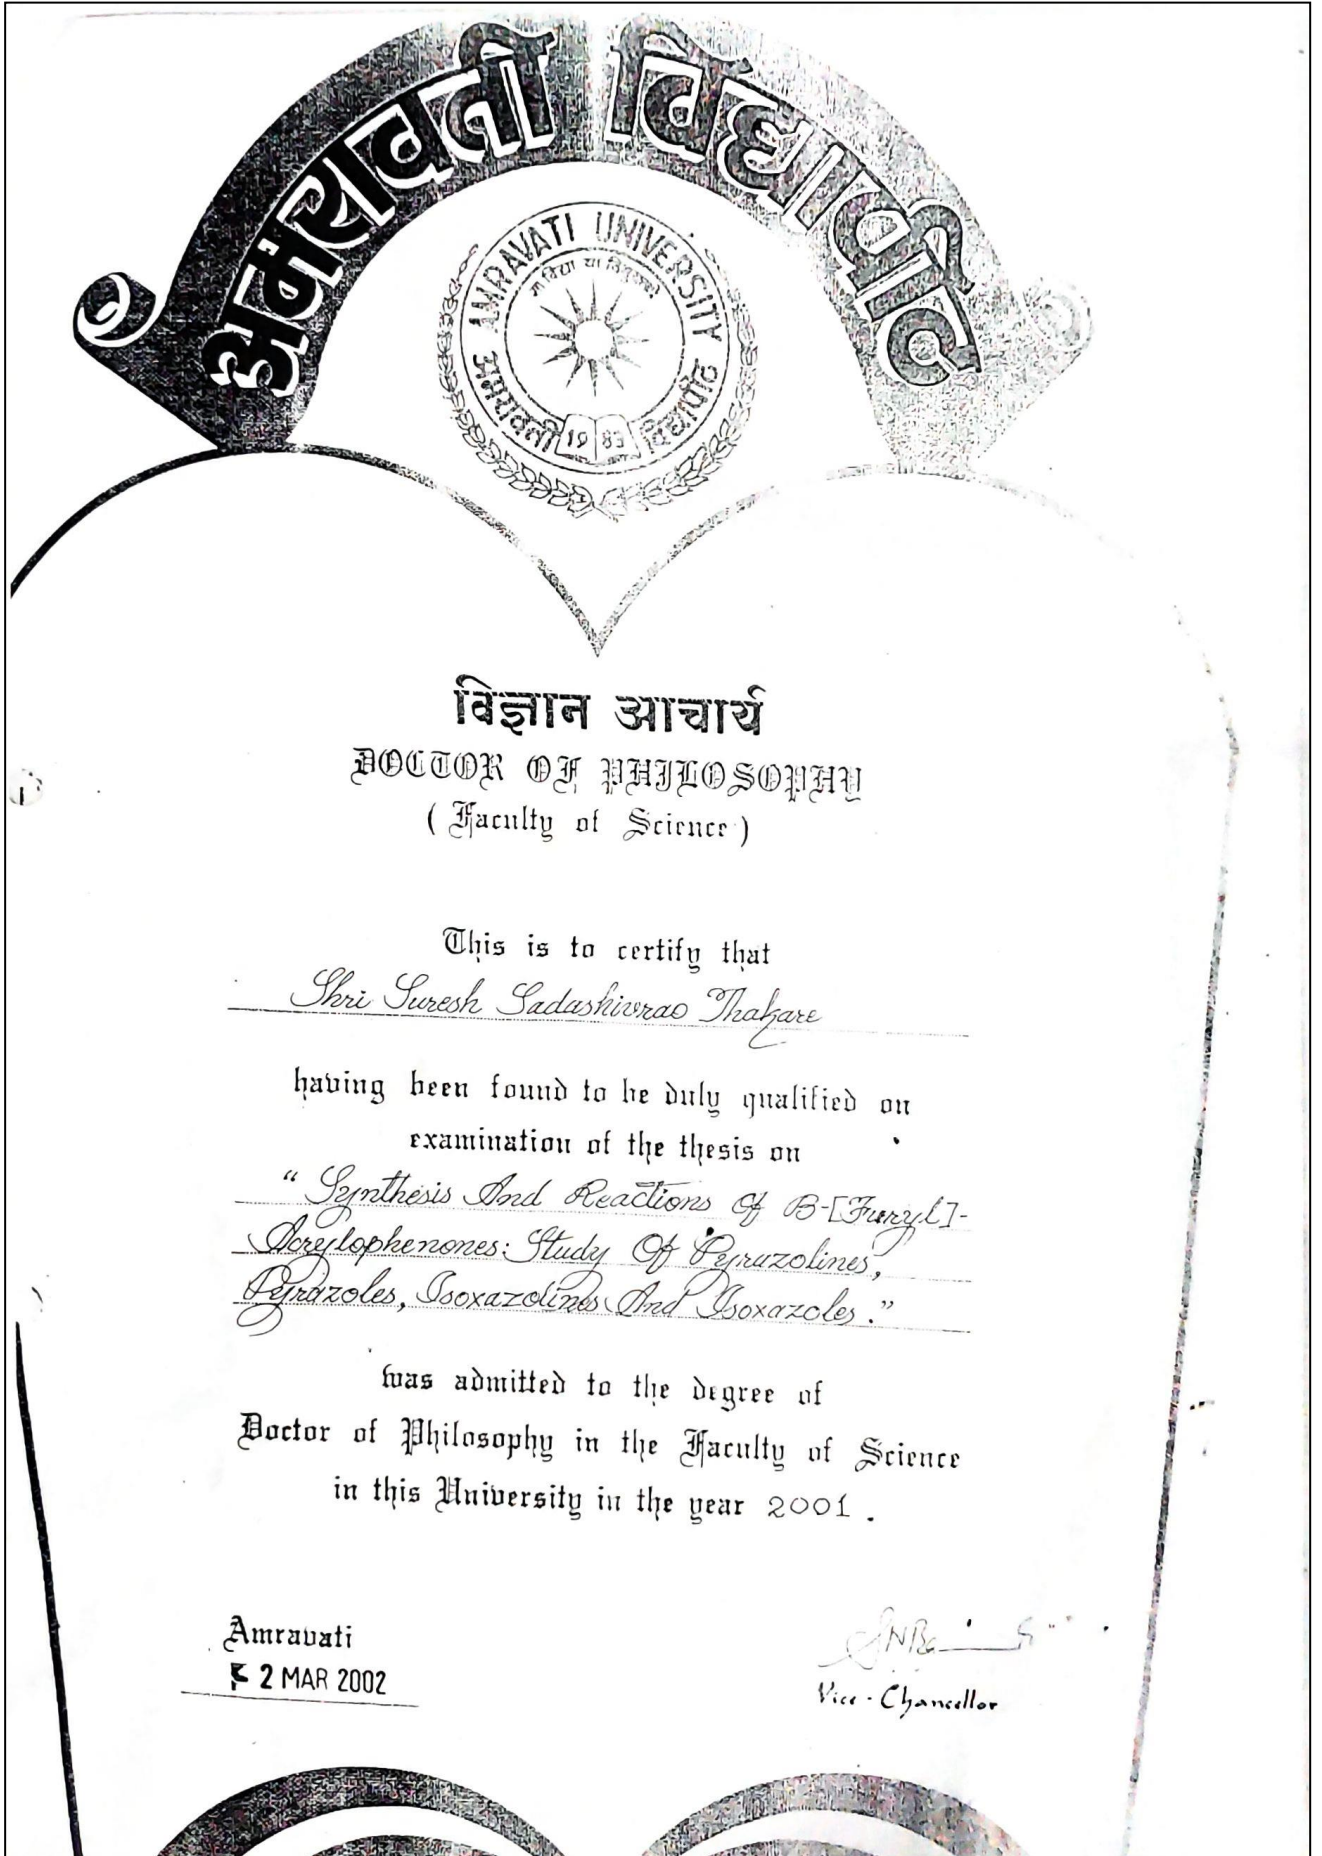 अमरावती विद्यापीठ
AMRAVATI UNIVERSITY
अमरावती विद्यापीठ
1983
विज्ञान आचार्य
DOCTOR OF PHILOSOPHY
(Faculty of Science)
This is to certify that
Shri Suresh Sadashivrao Thakare
having been found to be duly qualified on
examination of the thesis on
“ Synthesis And Reactions Of B-[Furyl]-
Acrylophenones: Study Of Pyrazolines,
Pyrazoles, Isoxazolines And Isoxazoles.”
was admitted to the degree of
Doctor of Philosophy in the Faculty of Science
in this University in the year 2001.
Amravati
2 MAR 2002
Vice-Chancellor